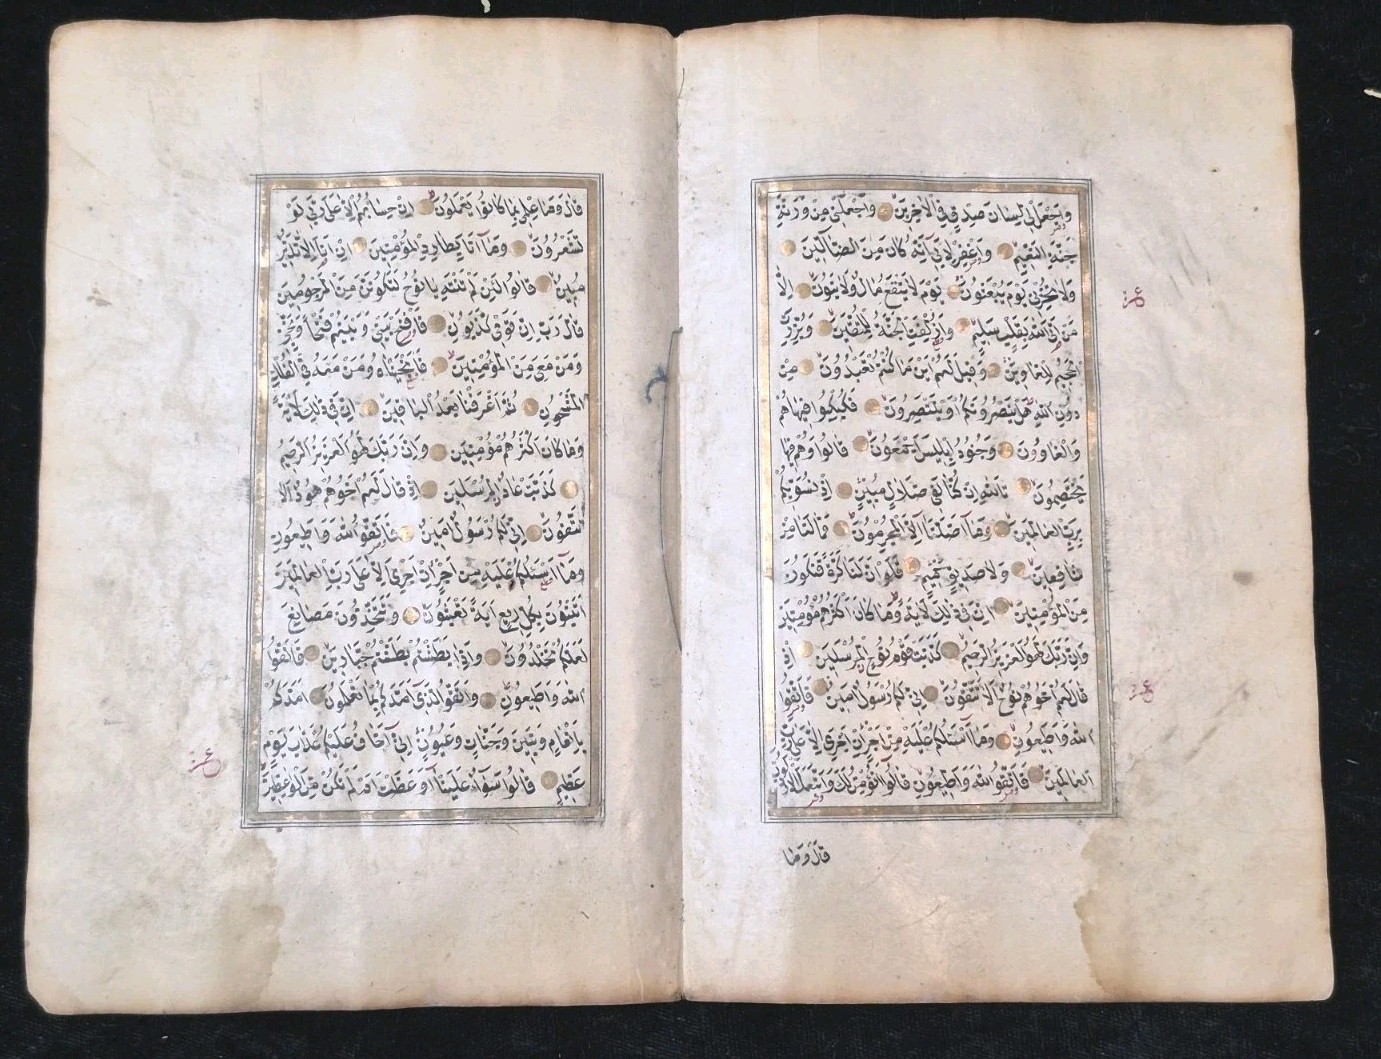 وَاجْعَلْ لِي لِسَانَ صِدْقٍ فِي الْاٰخِرِينَ وَاجْعَلْنِي مِنْ وَرَثَةِ
جَنَّةِ النَّعِيمِ وَاغْفِرْ لِاَبِي اِنَّهُ كَانَ مِنَ الضَّالِّينَ
وَلَا تُخْزِنِي يَوْمَ يُبْعَثُونَ يَوْمَ لَا يَنْفَعُ مَالٌ وَلَا بَنُونَ اِلَّا
عـ
مَنْ اَتَى اللّٰهَ بِقَلْبٍ سَلِيمٍ وَاُزْلِفَتِ الْجَنَّةُ لِلْمُتَّقِينَ وَبُرِّزَتِ
الْجَحِيمُ لِلْغَاوِينَ وَقِيلَ لَهُمْ اَيْنَ مَا كُنْتُمْ تَعْبُدُونَ مِنْ
دُونِ اللّٰهِ هَلْ يَنْصُرُونَكُمْ اَوْ يَنْتَصِرُونَ فَكُبْكِبُوا فِيهَا هُمْ
وَالْغَاوُونَ وَجُنُودُ اِبْلِيسَ اَجْمَعُونَ قَالُوا وَهُمْ فِيهَا
يَخْتَصِمُونَ تَاللّٰهِ اِنْ كُنَّا لَفِي ضَلَالٍ مُبِينٍ اِذْ نُسَوِّيكُمْ
بِرَبِّ الْعَالَمِينَ وَمَا اَضَلَّنَا اِلَّا الْمُجْرِمُونَ فَمَا لَنَا مِنْ
شَافِعِينَ وَلَا صَدِيقٍ حَمِيمٍ فَلَوْ اَنَّ لَنَا كَرَّةً فَنَكُونَ
مِنَ الْمُؤْمِنِينَ اِنَّ فِي ذٰلِكَ لَاٰيَةً وَمَا كَانَ اَكْثَرُهُمْ مُؤْمِنِينَ
وَاِنَّ رَبَّكَ لَهُوَ الْعَزِيزُ الرَّحِيمُ كَذَّبَتْ قَوْمُ نُوحٍ الْمُرْسَلِينَ اِذْ
قَالَ لَهُمْ اَخُوهُمْ نُوحٌ اَلَا تَتَّقُونَ اِنِّي لَكُمْ رَسُولٌ اَمِينٌ فَاتَّقُوا
عـ
اللّٰهَ وَاَطِيعُونِ وَمَا اَسْئَلُكُمْ عَلَيْهِ مِنْ اَجْرٍ اِنْ اَجْرِيَ اِلَّا عَلٰى رَبِّ
الْعَالَمِينَ فَاتَّقُوا اللّٰهَ وَاَطِيعُونِ قَالُوا اَنُؤْمِنُ لَكَ وَاتَّبَعَكَ الْاَرْذَلُونَ
قَالَ وَمَا
قَالَ وَمَا عِلْمِي بِمَا كَانُوا يَعْمَلُونَ اِنْ حِسَابُهُمْ اِلَّا عَلٰى رَبِّي لَوْ
تَشْعُرُونَ وَمَا اَنَا بِطَارِدِ الْمُؤْمِنِينَ اِنْ اَنَا اِلَّا نَذِيرٌ
مُبِينٌ قَالُوا لَئِنْ لَمْ تَنْتَهِ يَا نُوحُ لَتَكُونَنَّ مِنَ الْمَرْجُومِينَ
قَالَ رَبِّ اِنَّ قَوْمِي كَذَّبُونِ فَافْتَحْ بَيْنِي وَبَيْنَهُمْ فَتْحًا وَنَجِّنِي
وَمَنْ مَعِيَ مِنَ الْمُؤْمِنِينَ فَاَنْجَيْنَاهُ وَمَنْ مَعَهُ فِي الْفُلْكِ
الْمَشْحُونِ ثُمَّ اَغْرَقْنَا بَعْدُ الْبَاقِينَ اِنَّ فِي ذٰلِكَ لَاٰيَةً
وَمَا كَانَ اَكْثَرُهُمْ مُؤْمِنِينَ وَاِنَّ رَبَّكَ لَهُوَ الْعَزِيزُ الرَّحِيمُ
كَذَّبَتْ عَادٌ الْمُرْسَلِينَ اِذْ قَالَ لَهُمْ اَخُوهُمْ هُودٌ اَلَا
تَتَّقُونَ اِنِّي لَكُمْ رَسُولٌ اَمِينٌ فَاتَّقُوا اللّٰهَ وَاَطِيعُونِ
وَمَا اَسْئَلُكُمْ عَلَيْهِ مِنْ اَجْرٍ اِنْ اَجْرِيَ اِلَّا عَلٰى رَبِّ الْعَالَمِينَ
اَتَبْنُونَ بِكُلِّ رِيعٍ اٰيَةً تَعْبَثُونَ وَتَتَّخِذُونَ مَصَانِعَ
لَعَلَّكُمْ تَخْلُدُونَ وَاِذَا بَطَشْتُمْ بَطَشْتُمْ جَبَّارِينَ فَاتَّقُوا
اللّٰهَ وَاَطِيعُونِ وَاتَّقُوا الَّذِي اَمَدَّكُمْ بِمَا تَعْلَمُونَ اَمَدَّكُمْ
بِاَنْعَامٍ وَبَنِينَ وَجَنَّاتٍ وَعُيُونٍ اِنِّي اَخَافُ عَلَيْكُمْ عَذَابَ يَوْمٍ
عَظِيمٍ قَالُوا سَوَاءٌ عَلَيْنَا اَوَعَظْتَ اَمْ لَمْ تَكُنْ مِنَ الْوَاعِظِينَ